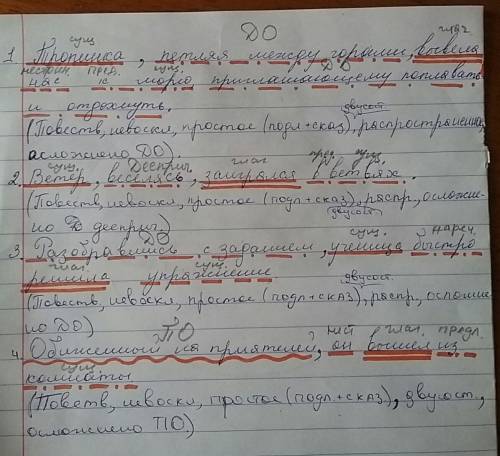 ДО
сущ глаг
1. Тропинка, петляя между горами, вывела
местоим. пред. сущ. ДО
нас к морю, приглашающему поплавать
и отдохнуть.
двусост
(Повеств, невоскл, простое (подл+сказ), распространена,
осложнено ДО).
сущ. Дееприч. глаг пред. сущ.
2. Ветер, веселясь, заигрался в ветвях.
(Повеств, невоскл, простое (подл+сказ), распр, осложне-
но Д дееприч.) двусост
ДО сущ. нареч.
3. Разобравшись с заданием, ученица быстро
глаг. сущ.
решила упражнение
двусост.
(Повеств, невоскл, простое (подл+сказ), распр, осложне
но ДО)
ПО глаг. предл.
4. Обиженный на приятелей, он вышел из
сущ
комнаты
(Повеств, невоскл, простое (подл+сказ), двусост.,
осложнено ПО.)